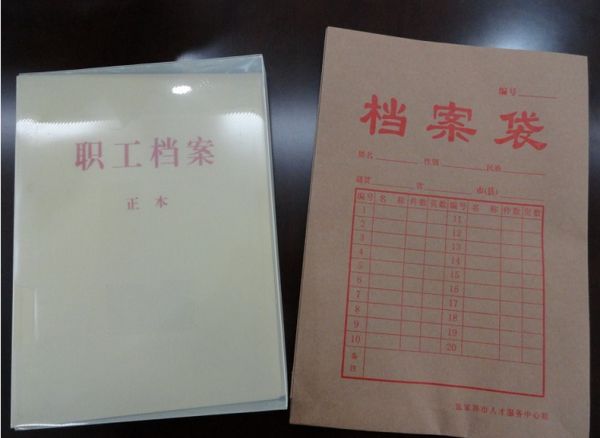 职工档案
正本
编号
档案袋
姓名 性别 民族
籍贯 省 市(县)
编号 名称 件数 页数 编号 名称 件数 页数
1 11
2 12
3 13
4 14
5 15
6 16
7 17
8 18
9 19
10 20
备注
张家界市人才服务中心制